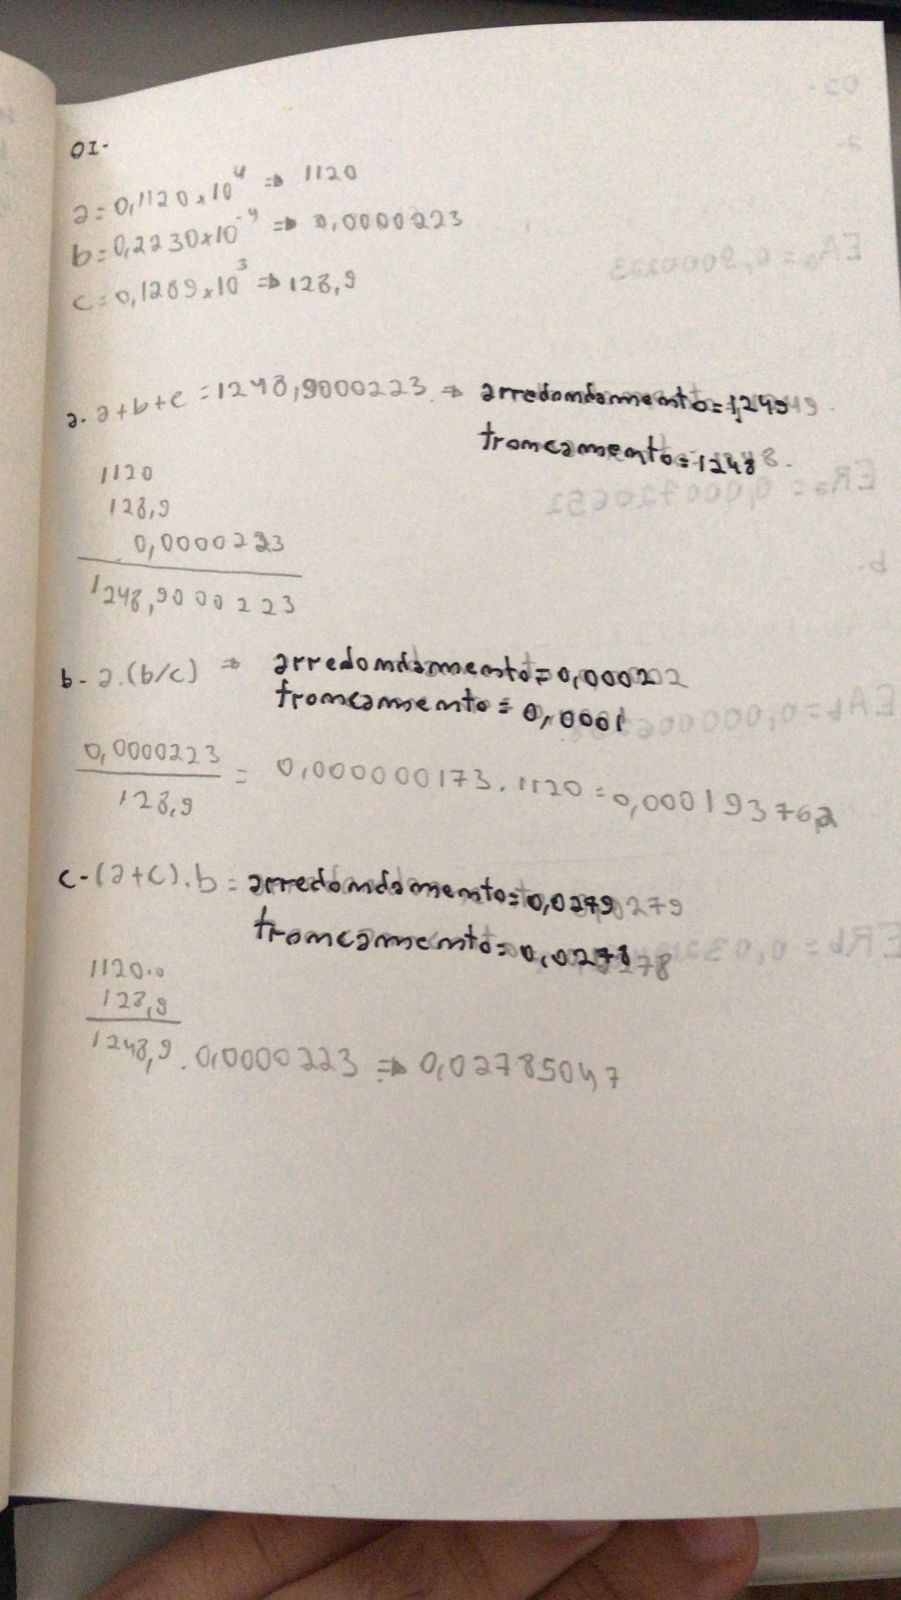 01-
a=0,1120x10⁴ ⇒ 1120
b=0,2230x10⁻⁴ ⇒ 0,0000223
c=0,1289x10³ ⇒ 128,9
a. a+b+c = 1248,9000223 ⇒ arredondamento=1249
truncamento=1248
1120
128,9
0,0000223
1248,9000223
b- a.(b/c) ⇒ arredondamento=0,0002
truncamento=0,0001
0,0000223
128,9
= 0,000000173.1120=0,000193762
c-(a+c).b= arredondamento=0,0279
truncamento=0,0278
1120.0
128,9
1248,9.0,0000223 ⇒ 0,02785047